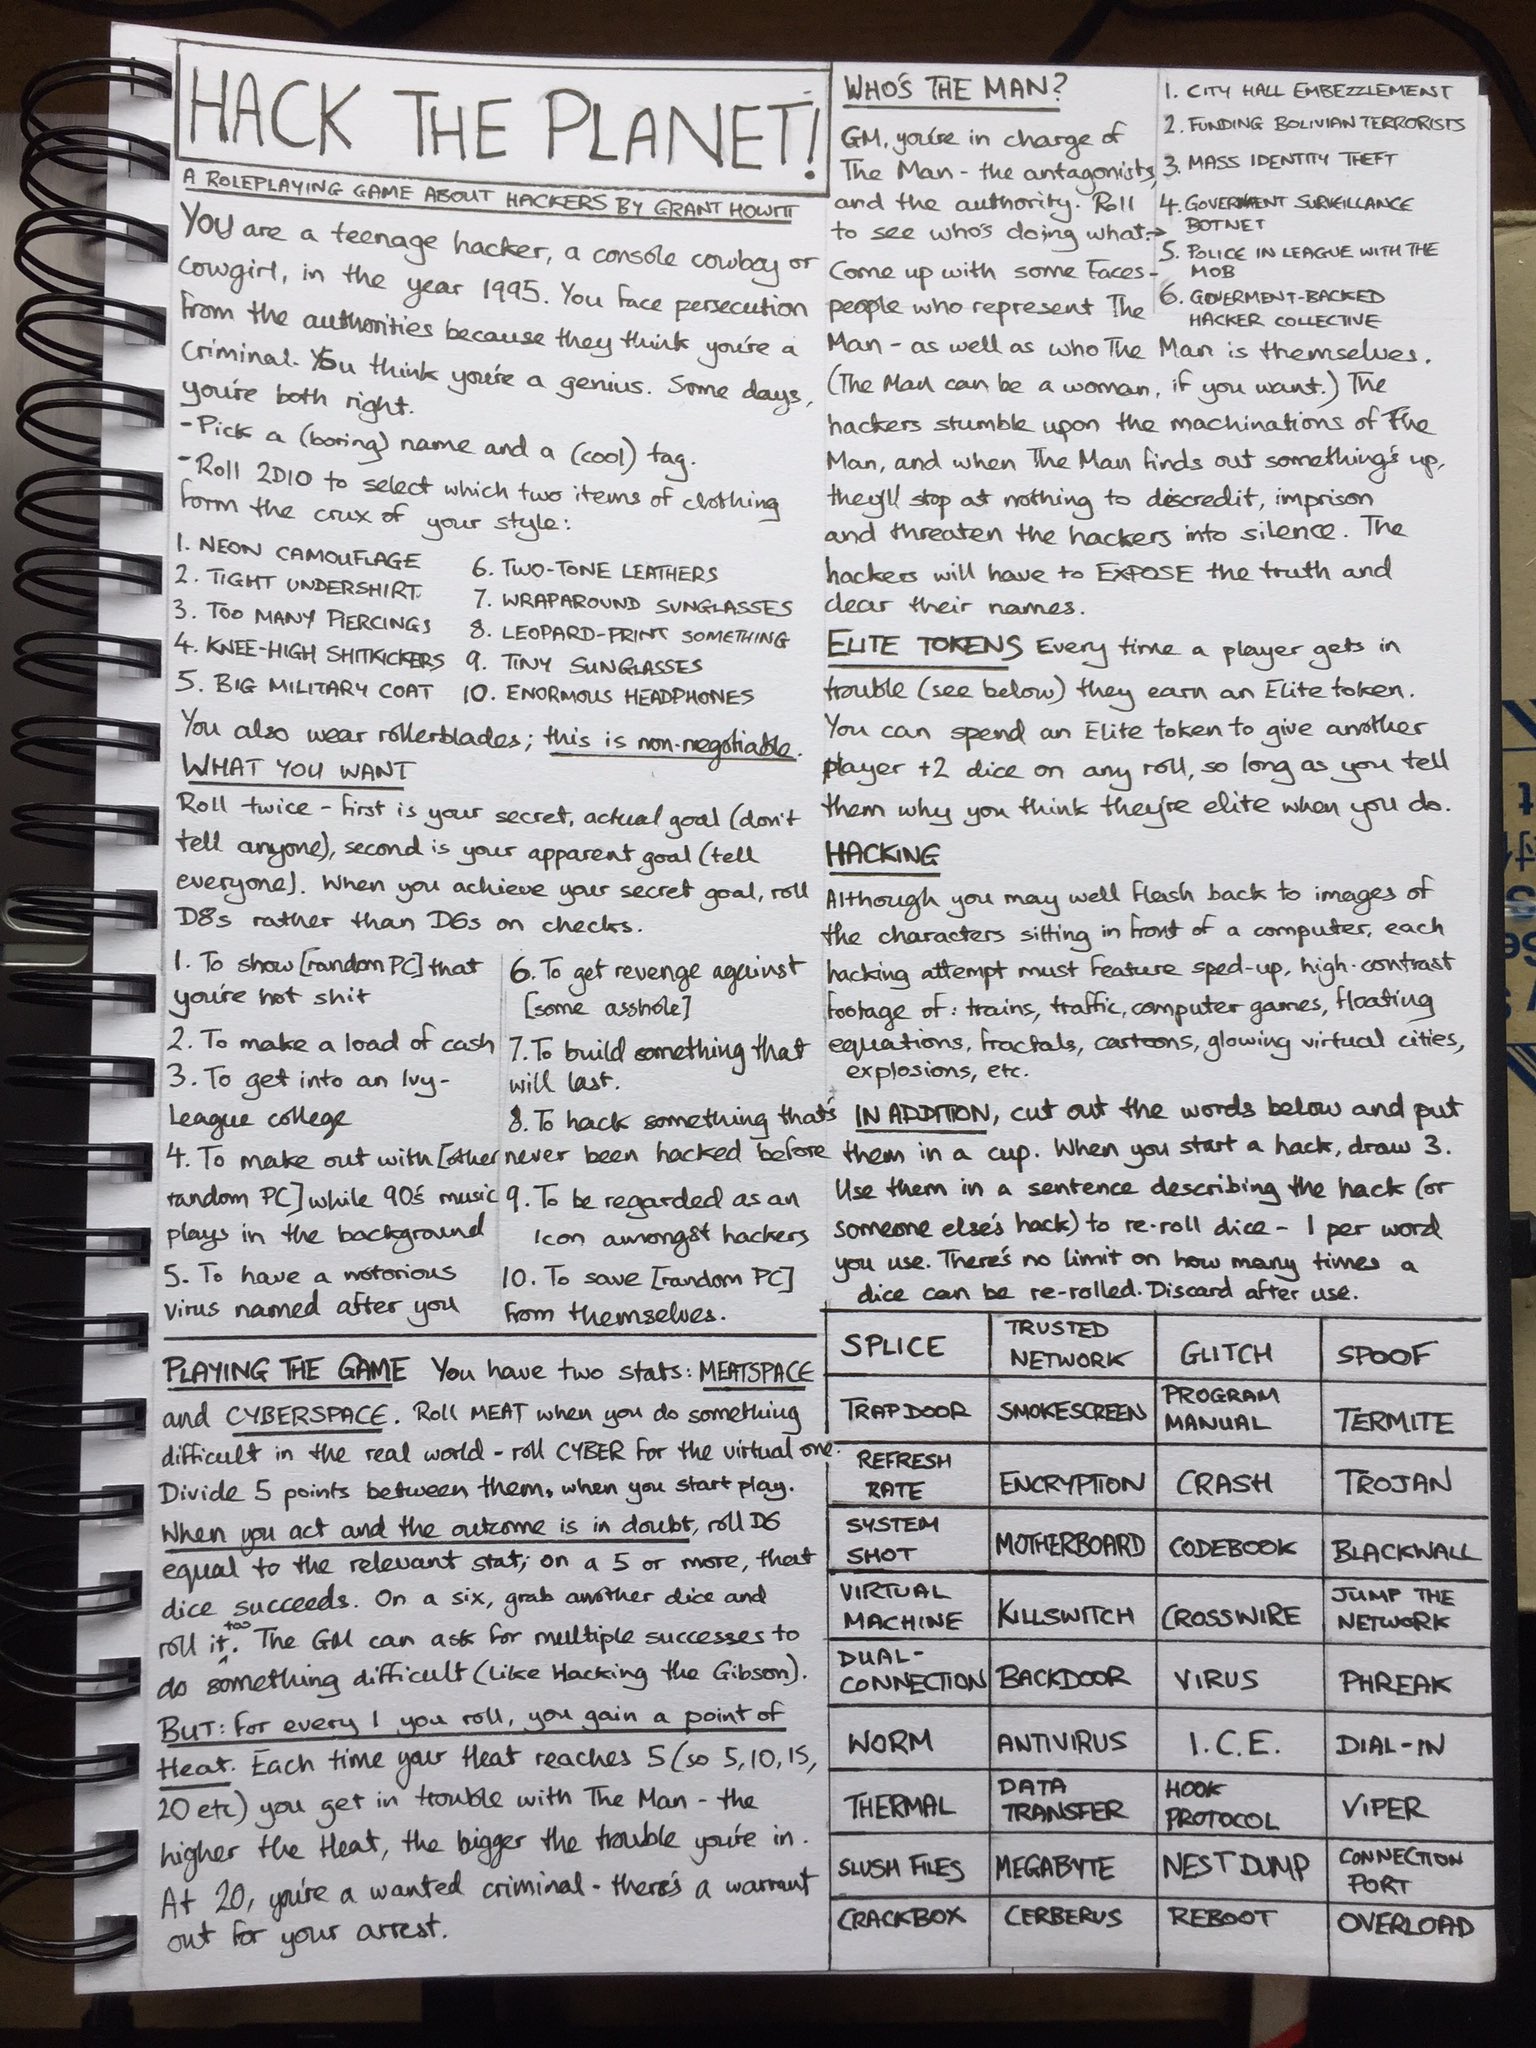 HACK THE PLANET!
A ROLEPLAYING GAME ABOUT HACKERS BY GRANT HOWITT
You are a teenage hacker, a console cowboy or
cowgirl, in the year 1995. You face persecution
from the authorities because they think you're a
criminal. You think you're a genius. Some days,
you're both right.
-Pick a (boring) name and a (cool) tag.
-Roll 2D10 to select which two items of clothing
form the crux of your style:
1. NEON CAMOUFLAGE
2. TIGHT UNDERSHIRT.
3. TOO MANY PIERCINGS
4. KNEE-HIGH SHITKICKERS
5. BIG MILITARY COAT
6. TWO-TONE LEATHERS
7. WRAPAROUND SUNGLASSES
8. LEOPARD-PRINT SOMETHING
9. TINY SUNGLASSES
10. ENORMOUS HEADPHONES
You also wear rollerblades; this is non-negotiable.
WHAT YOU WANT
Roll twice - first is your secret, actual goal (don't
tell anyone), second is your apparent goal (tell
everyone). When you achieve your secret goal, roll
D8s rather than D6s on checks.
1. To show [random PC] that
you're hot shit
2. To make a load of cash
3. To get into an Ivy-
League college
4. To make out with [other
random PC] while 90's music
plays in the background
5. To have a notorious
virus named after you
6. To get revenge against
[some asshole]
7. To build something that
will last.
8. To hack something that's
never been hacked before
9. To be regarded as an
icon amongst hackers
10. To save [random PC]
from themselves.
PLAYING THE GAME You have two stats: MEATSPACE
and CYBERSPACE. Roll MEAT when you do something
difficult in the real world - roll CYBER for the virtual one.
Divide 5 points between them, when you start play.
When you act and the outcome is in doubt, roll D6
equal to the relevant stat; on a 5 or more, that
dice succeeds. On a six, grab another dice and
roll it too. The GM can ask for multiple successes to
do something difficult (like Hacking the Gibson).
BUT: for every 1 you roll, you gain a point of
Heat. Each time your Heat reaches 5 (so 5, 10, 15,
20 etc) you get in trouble with The Man - the
higher the Heat, the bigger the trouble you're in.
At 20, you're a wanted criminal - there's a warrant
out for your arrest.
WHO'S THE MAN?
GM, you're in charge of
The Man - the antagonists,
and the authority. Roll
to see who's doing what.→
Come up with some Faces -
people who represent The
Man - as well as who The Man is themselves.
(The Man can be a woman, if you want.) The
hackers stumble upon the machinations of The
Man, and when The Man finds out something's up,
they'll stop at nothing to discredit, imprison
and threaten the hackers into silence. The
hackers will have to EXPOSE the truth and
clear their names.
1. CITY HALL EMBEZZLEMENT
2. FUNDING BOLIVIAN TERRORISTS
3. MASS IDENTITY THEFT
4. GOVERNMENT SURVEILLANCE
BOTNET
5. POLICE IN LEAGUE WITH THE
MOB
6. GOVERMENT-BACKED
HACKER COLLECTIVE
ELITE TOKENS Every time a player gets in
trouble (see below) they earn an Elite token.
You can spend an Elite token to give another
player +2 dice on any roll, so long as you tell
them why you think they're elite when you do.
HACKING
Although you may well flash back to images of
the characters sitting in front of a computer, each
hacking attempt must feature sped-up, high-contrast
footage of: trains, traffic, computer games, floating
equations, fractals, cartoons, glowing virtual cities,
explosions, etc.
IN ADDITION, cut out the words below and put
them in a cup. When you start a hack, draw 3.
Use them in a sentence describing the hack (or
someone else's hack) to re-roll dice - 1 per word
you use. There's no limit on how many times a
dice can be re-rolled. Discard after use.
SPLICE TRUSTED NETWORK GLITCH SPOOF
TRAPDOOR SMOKESCREEN PROGRAM MANUAL TERMITE
REFRESH RATE ENCRYPTION CRASH TROJAN
SYSTEM SHOT MOTHERBOARD CODEBOOK BLACKWALL
VIRTUAL MACHINE KILLSWITCH CROSSWIRE JUMP THE NETWORK
DUAL-CONNECTION BACKDOOR VIRUS PHREAK
WORM ANTIVIRUS I.C.E. DIAL-IN
THERMAL DATA TRANSFER HOOK PROTOCOL VIPER
SLUSH FILES MEGABYTE NEST DUMP CONNECTION PORT
CRACKBOX CERBERUS REBOOT OVERLOAD